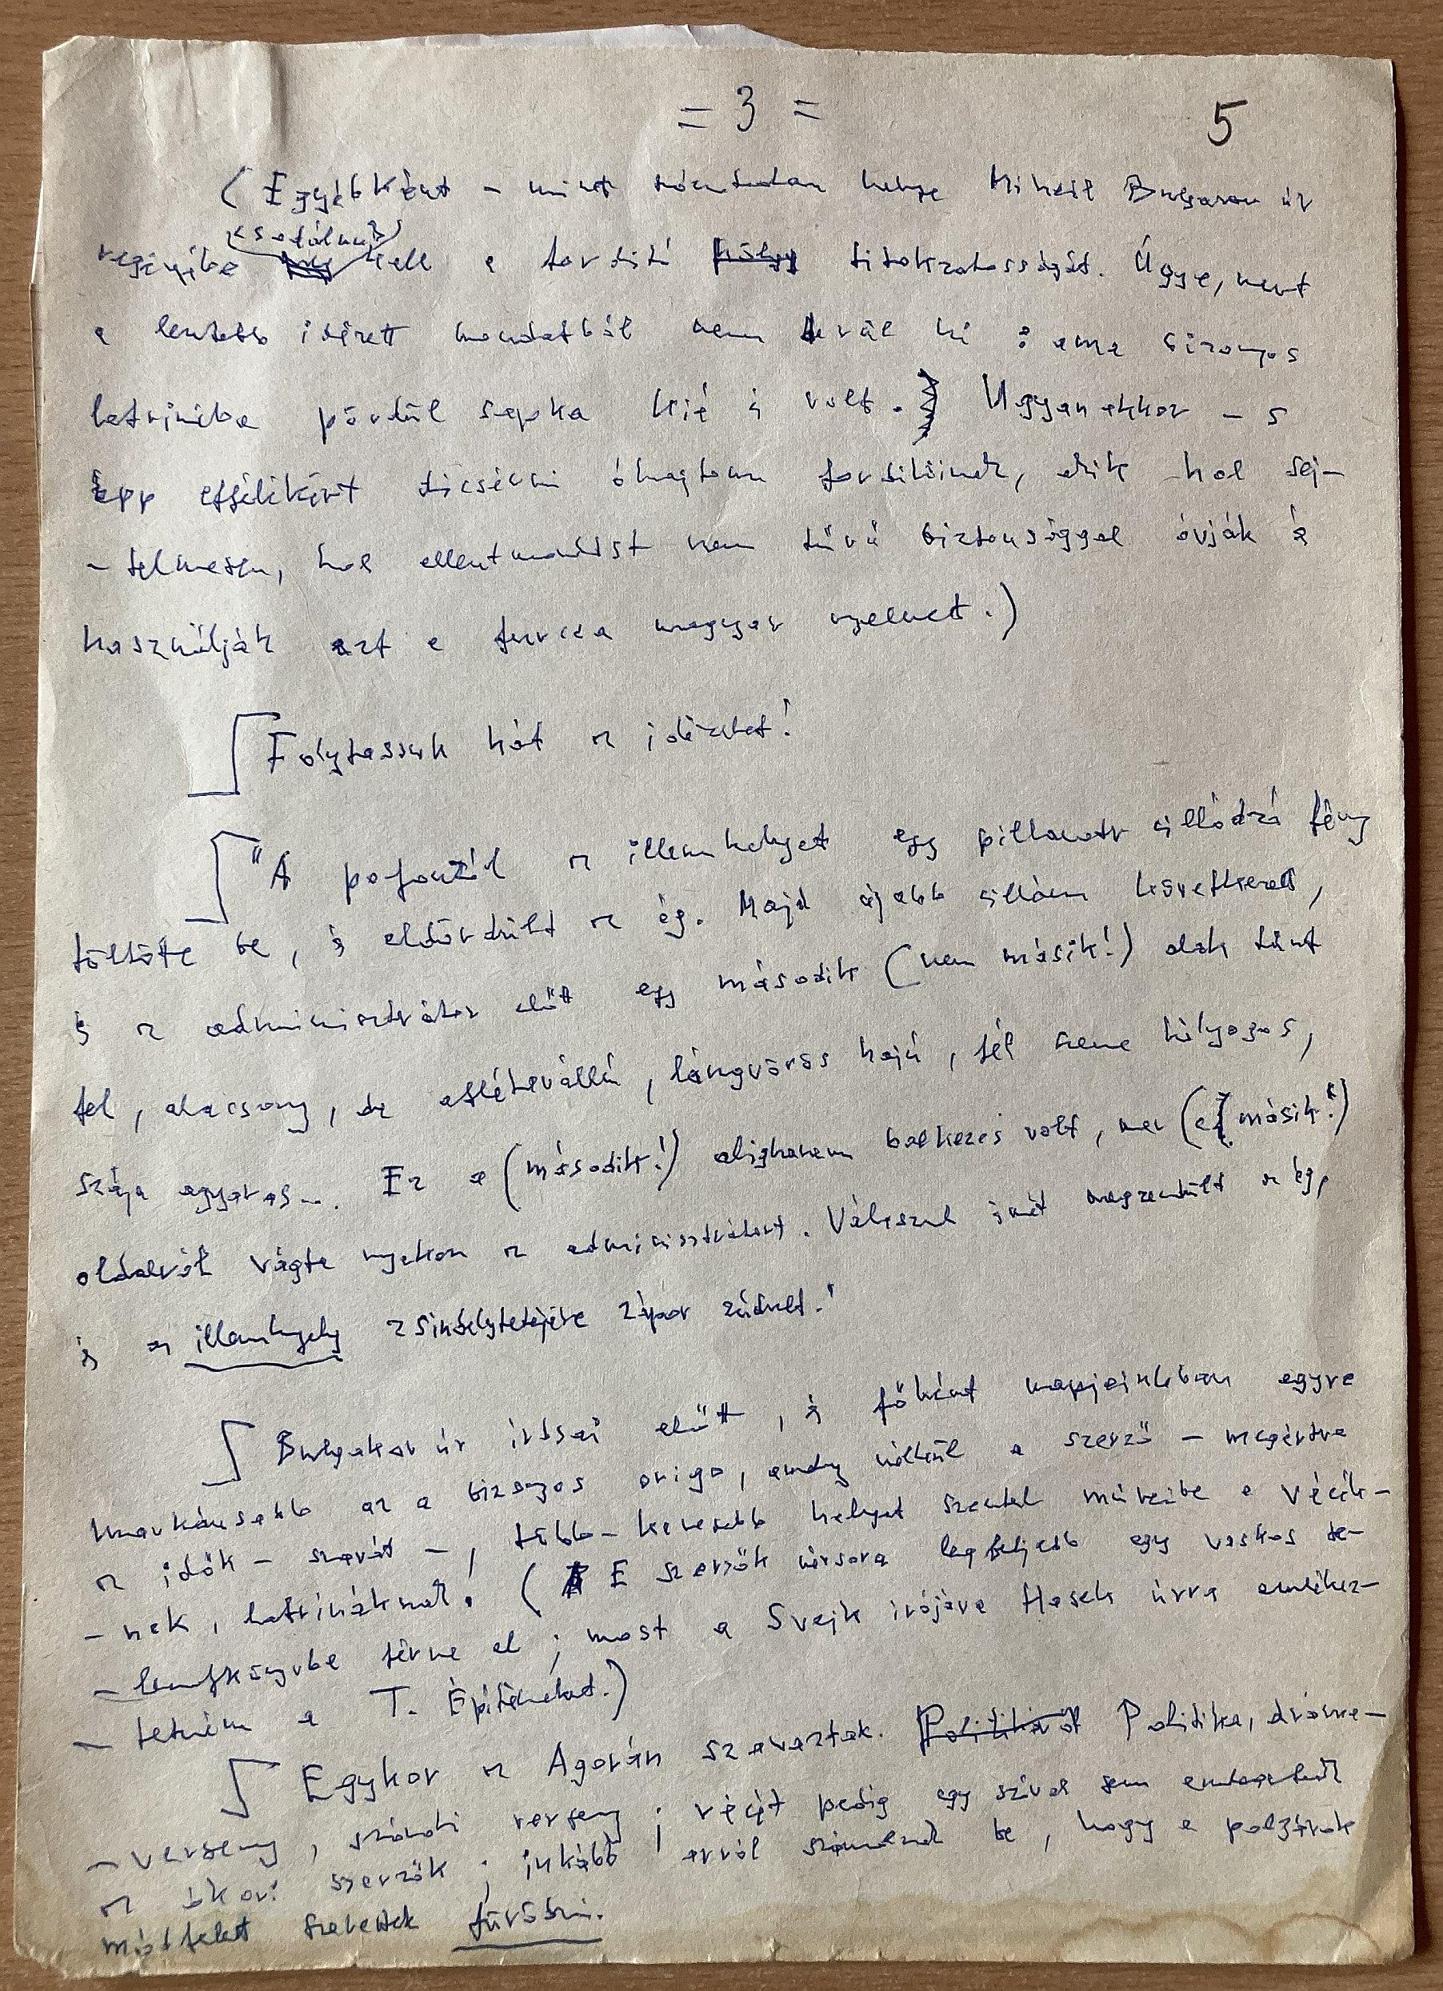 = 3 = 5
(Egyébként – mint név szerint Mihail Bulgakov úr
regényibe csodálnunk kell a fordító titokzatosságát. Ugye, mert
a lentebb idézett mondatból nem vál ki : ama bizonyos
latrinába pördül sapka kié is volt. Ugyanakkor – s
épp effélikért dicsérni óhajtom fordítóinkat, akik hol sej-
- telmesen, hol ellentmondást nem tűrő biztonsággal óvják és
használják ezt a furcsa magyar nyelvet.)
Folytassuk hát az idézetet!
"A pofontól az illemhelyet egy pillanatra villódzó fény
töltötte be, és eldördült az ég. Majd újabb villám következett,
és az adminisztrátor előtt egy második (nem másik!) alak tűnt
fel, alacsony, de atlétavállú, lángvörös hajú, fél szeme hályogos,
szája agyaras... Ez a (második!) alighanem balkezes volt, mer (a másik!)
oldalról vágta nyakon az adminisztrátort. Válaszul ismét megzendült az ég,
és az illemhely zsindelytetejére zápor zúdult."
Bulgakov úr írásai előtt, és főként napjainkban egyre
markánsabb az a bizonyos origo, amely nélkül a szerző – megértve
az idők – szavát –, több-kevesebb helyet szentel műveibe a vécék-
- nek, latrináknak. (E szerzők névsora legfeljebb egy vaskos te-
- lefonkönyvbe férne el; most a Svejk írójára Hasek úrra emlékez-
- tetném a T. Építőnket.)
Egykor az Agorán szavaztak. Politikát Politika, dráma-
- verseny, szónoki verseny; vécét pedig egy szóval sem emlegettek
az ókori szerzők; inkább arról számolnak be, hogy a polgárok
másfelett szerettek fürödni.